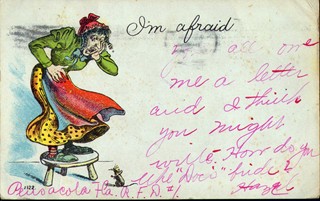 I'm afraid
all owe
me a letter
and I think
you might
write. How do you
like "Doc's" hide?
Pensacola Fla. R.F.D. #1.
Hazel
1122